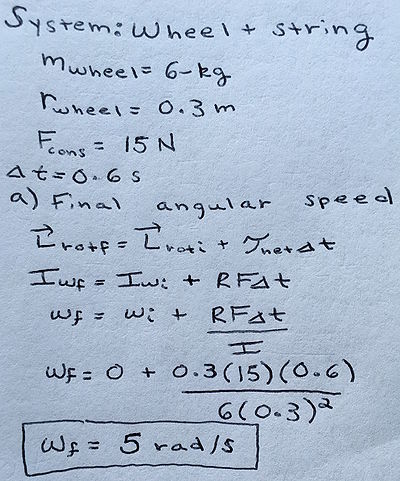 System: Wheel + string
mwheel = 6-kg
rwheel = 0.3 m
Fcons = 15 N
Δt = 0.6 s
a) Final angular speed
L⃗rotf = L⃗roti + τnetΔt
Iωf = Iωi + RFΔt
ωf = ωi + RFΔt / I
ωf = 0 + 0.3(15)(0.6) / 6(0.3)²
ωf = 5 rad/s